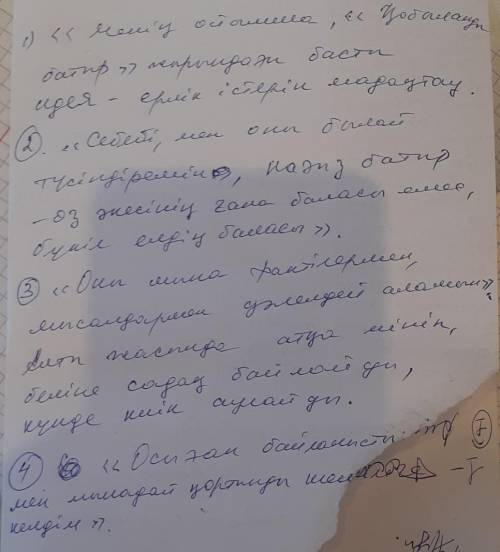 1) « Менің ойымша, « Қобыланды
батыр » жырындағы басты
идея - ерлік істерін мадақтау.
2. «Себебі, мен оны былай
түсіндіремін, нағыз батыр
- өз әкесінің ғана баласы емес,
бүкіл елдің баласы».
3 «Оны мына фактілермен,
мысалдармен дәлелдей аламын»
Алты жасында атқа мініп,
беліне садақ байлайды,
күнде киік аулайды.
4 « Осыған байланысты
мен мынадай қортынды
келдім ».